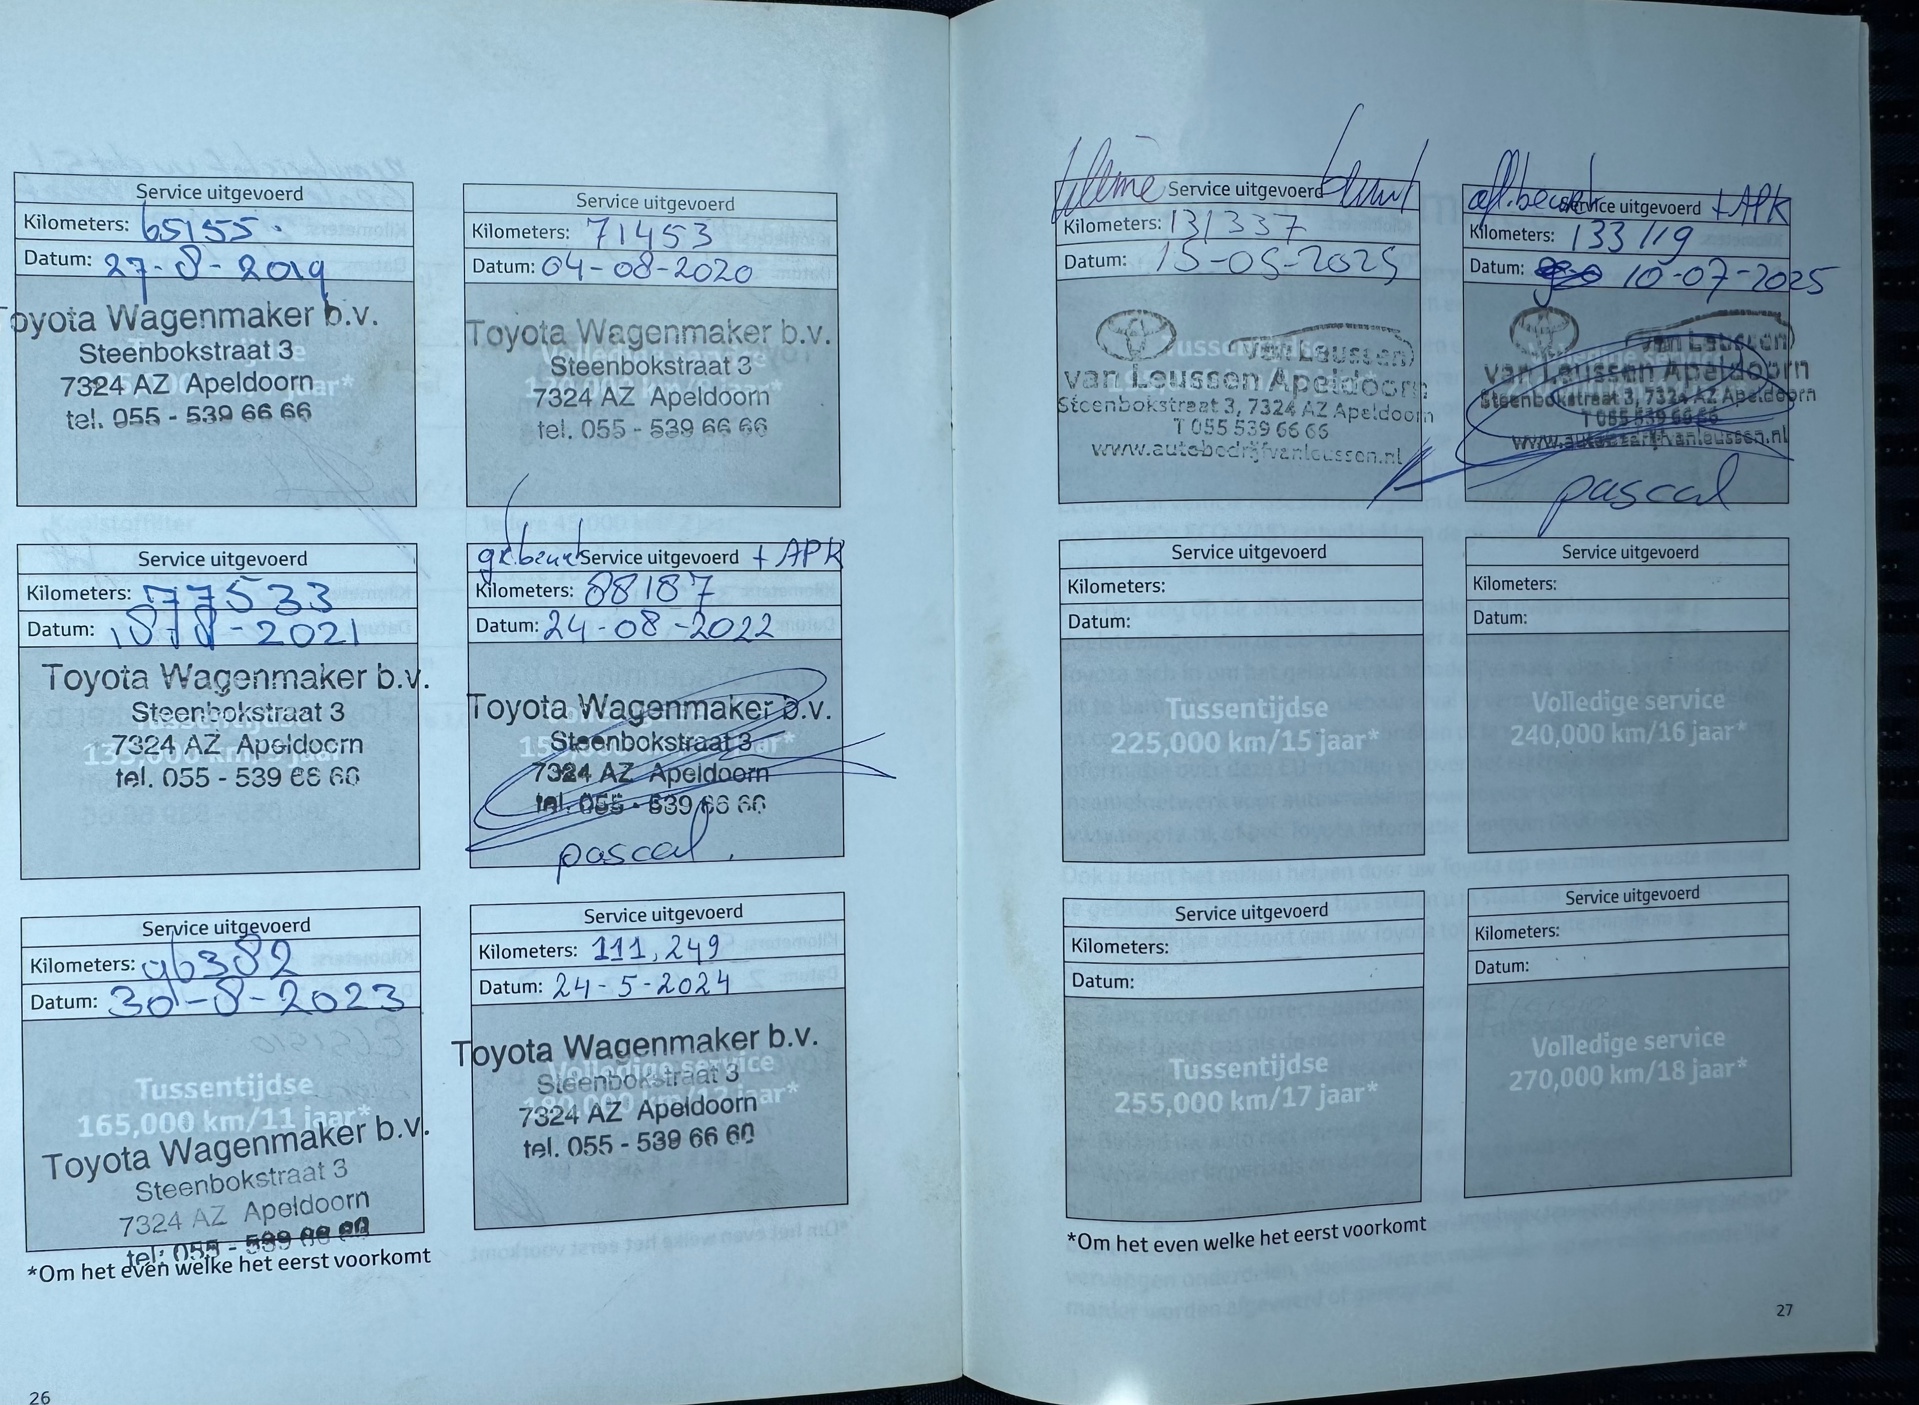 Service uitgevoerd
Kilometers: 65155.
Datum: 27-8-2019
Toyota Wagenmaker b.v.
Steenbokstraat 3
7324 AZ Apeldoorn
tel. 055 - 539 66 66
Service uitgevoerd
Kilometers: 71453
Datum: 04-08-2020
Toyota Wagenmaker b.v.
Steenbokstraat 3
7324 AZ Apeldoorn
tel. 055 - 539 66 66
Service uitgevoerd
Kilometers: 77533
Datum: 18-8-2021
Toyota Wagenmaker b.v.
Steenbokstraat 3
7324 AZ Apeldoorn
tel. 055 - 539 66 66
gr. beurt Service uitgevoerd + APK
Kilometers: 88187
Datum: 24-08-2022
Toyota Wagenmaker b.v.
Steenbokstraat 3
7324 AZ Apeldoorn
tel. 055 - 539 66 66
pascal
Service uitgevoerd
Kilometers: 96382
Datum: 30-8-2023
Tussentijdse
165,000 km/11 jaar*
Toyota Wagenmaker b.v.
Steenbokstraat 3
7324 AZ Apeldoorn
tel: 055 - 539 66 66
Service uitgevoerd
Kilometers: 111,249
Datum: 24-5-2024
Toyota Wagenmaker b.v.
Volledige service
Steenbokstraat 3
7324 AZ Apeldoorn
tel. 055 - 539 66 66
*Om het even welke het eerst voorkomt
26
kleine Service uitgevoerd beurt
Kilometers: 131337
Datum: 15-05-2025
Tussentijdse
van Leussen
van Leussen Apeldoorn
Steenbokstraat 3, 7324 AZ Apeldoorn
T 055 539 66 66
www.autobedrijfvanleussen.nl
afl. beurt Service uitgevoerd + APK
Kilometers: 133119
Datum: 10-07-2025
van Leussen
van Leussen Apeldoorn
Steenbokstraat 3, 7324 AZ Apeldoorn
T 055 539 66 66
pascal
Service uitgevoerd
Kilometers:
Datum:
Tussentijdse
225,000 km/15 jaar*
Service uitgevoerd
Kilometers:
Datum:
Volledige service
240,000 km/16 jaar*
Service uitgevoerd
Kilometers:
Datum:
Tussentijdse
255,000 km/17 jaar*
Service uitgevoerd
Kilometers:
Datum:
Volledige service
270,000 km/18 jaar*
*Om het even welke het eerst voorkomt
27